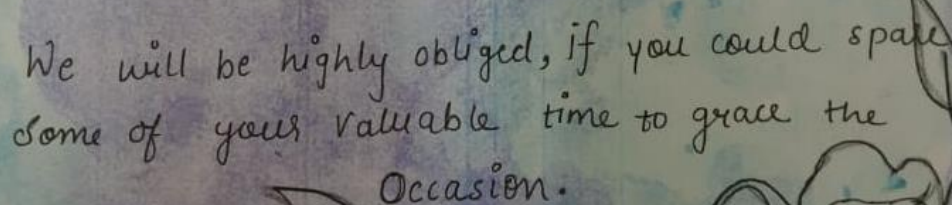 We will be highly obliged, if you could spare
some of your valuable time to grace the
Occasion.